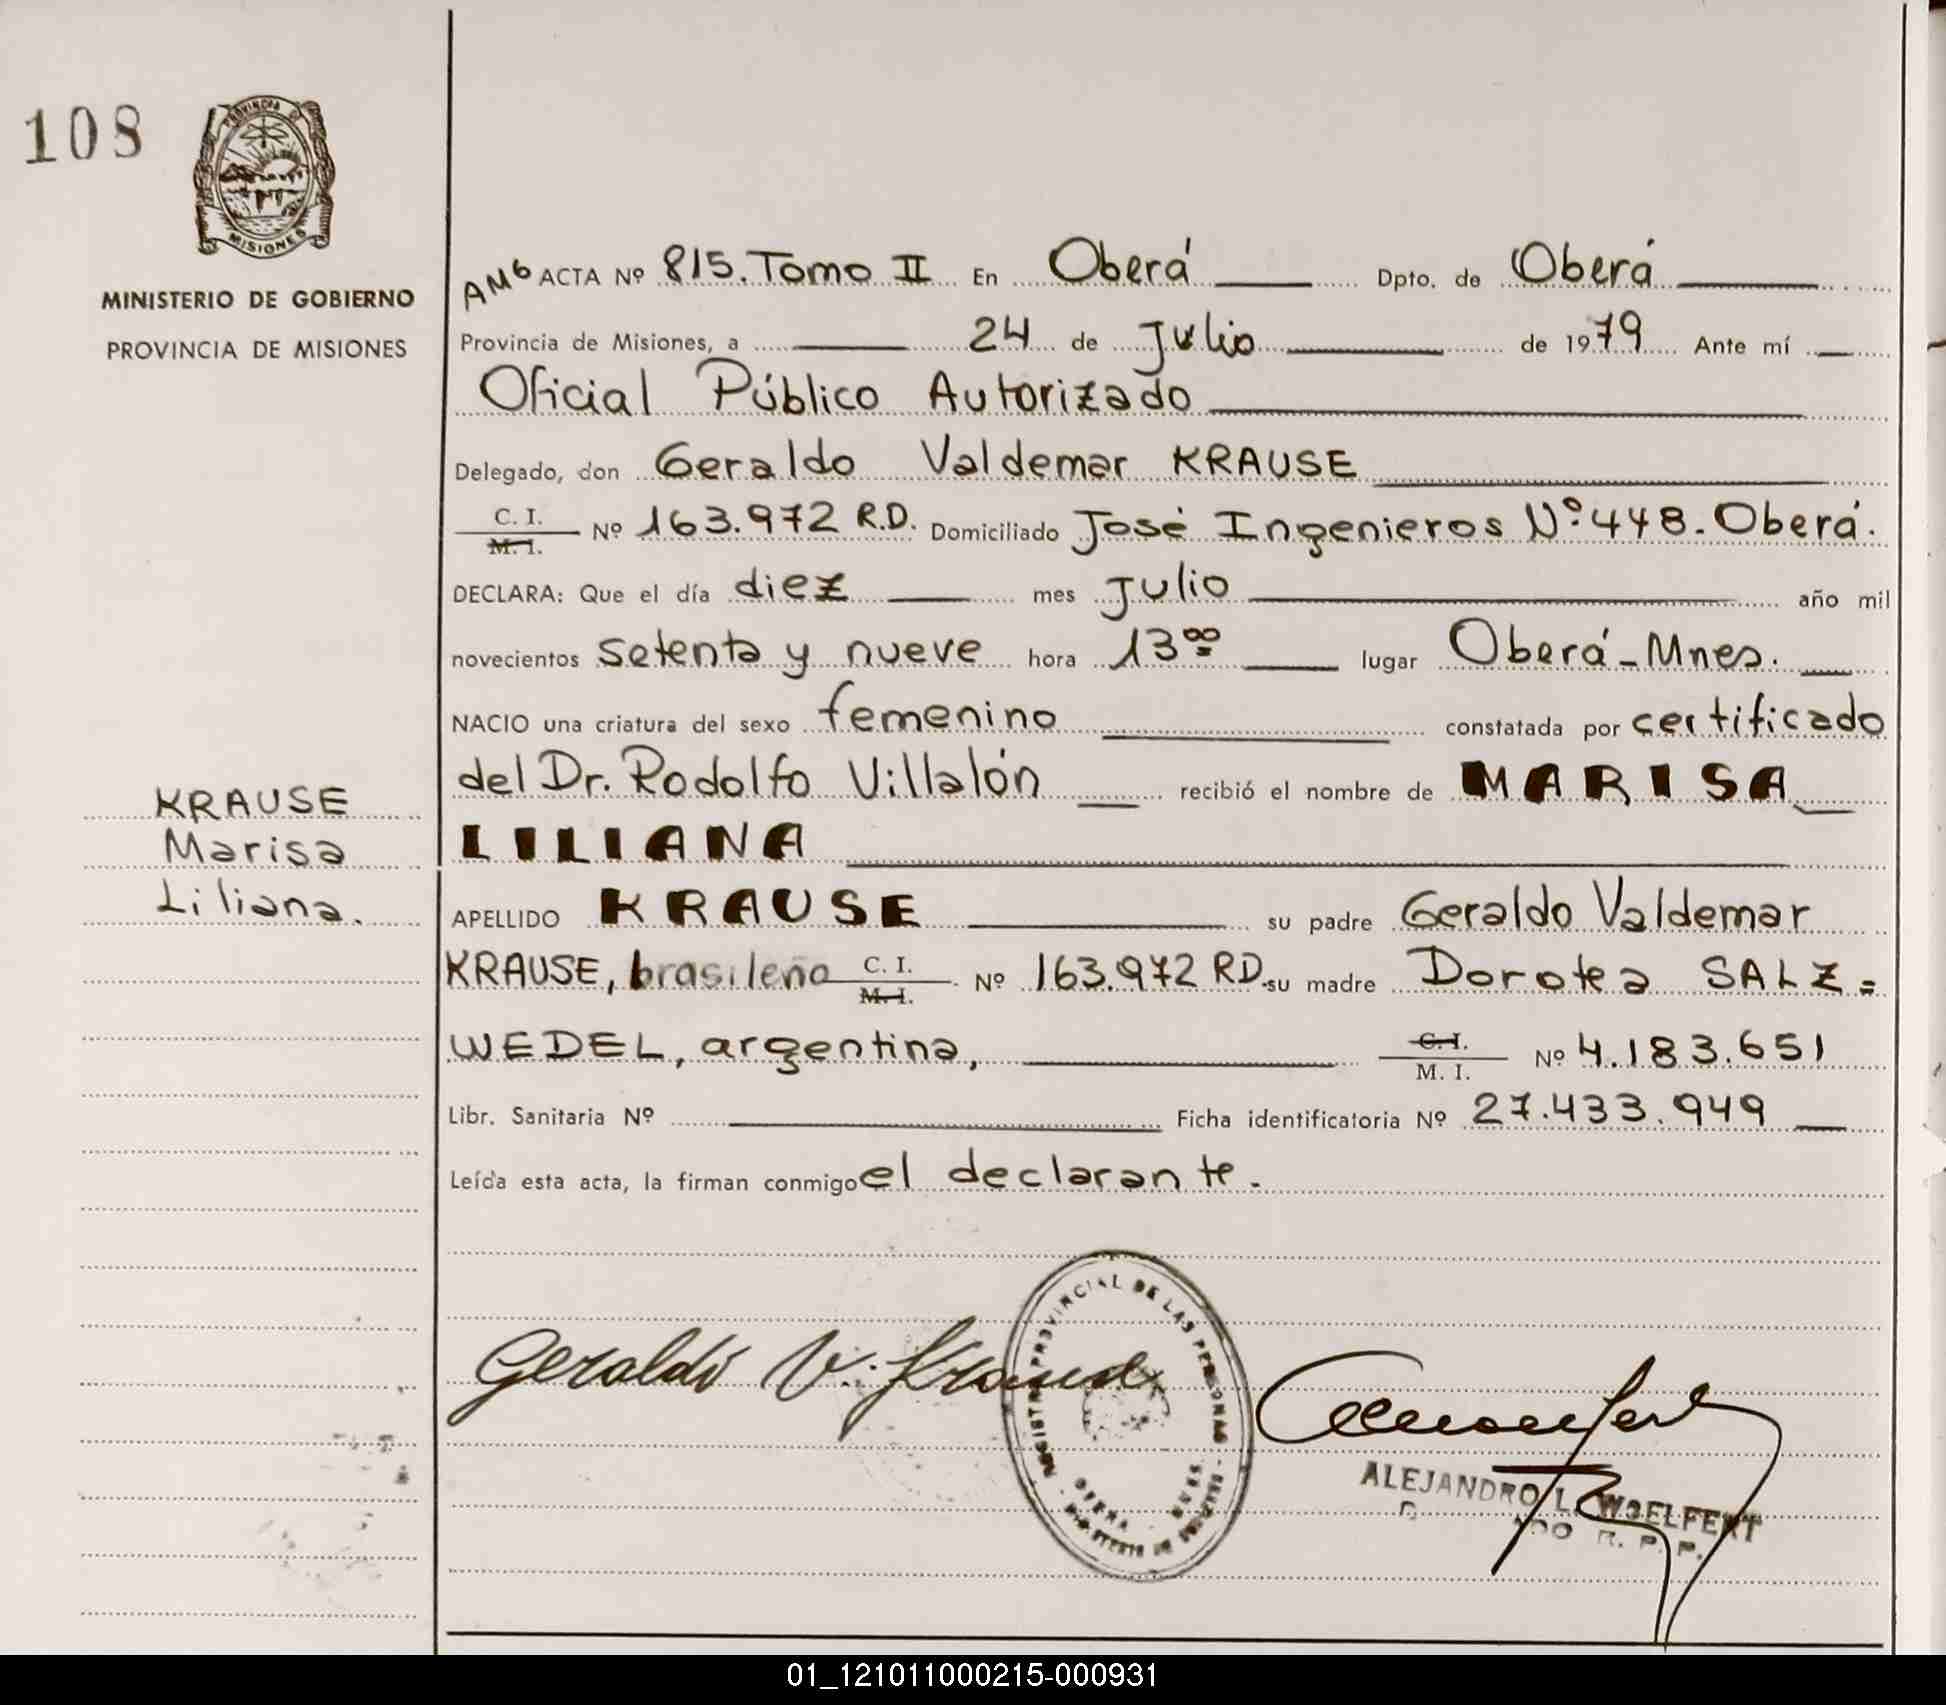 108
PROVINCIA DE
MISIONES
MINISTERIO DE GOBIERNO
PROVINCIA DE MISIONES
KRAUSE
Marisa
Liliana.
AMb ACTA Nº 815. Tomo II En Oberá Dpto. de Oberá
Provincia de Misiones, a 24 de Julio de 1979 Ante mí
Oficial Público Autorizado
Delegado, don Geraldo Valdemar KRAUSE
C. I.
M. I. Nº 163.972 R.D. Domiciliado José Ingenieros Nº 448. Oberá.
DECLARA: Que el día diez mes Julio año mil
novecientos setenta y nueve hora 13⁰⁰ lugar Oberá-Mnes.
NACIO una criatura del sexo femenino constatada por certificado
del Dr. Rodolfo Villalón recibió el nombre de MARISA
LILIANA
APELLIDO KRAUSE su padre Geraldo Valdemar
KRAUSE, brasileño C. I.
M. I. Nº 163.972 RD. su madre Dorotea SALZ=
WEDEL, argentina, C. I.
M. I. Nº 4.183.651
Libr. Sanitaria Nº Ficha identificatoria Nº 27.433.949
Leída esta acta, la firman conmigo el declarante.
Geraldo V. Krause
REGISTRO PROVINCIAL DE LAS PERSONAS
OBERA MNES.
ALEJANDRO L. WOELFERT
R. P. P.
01_121011000215-000931